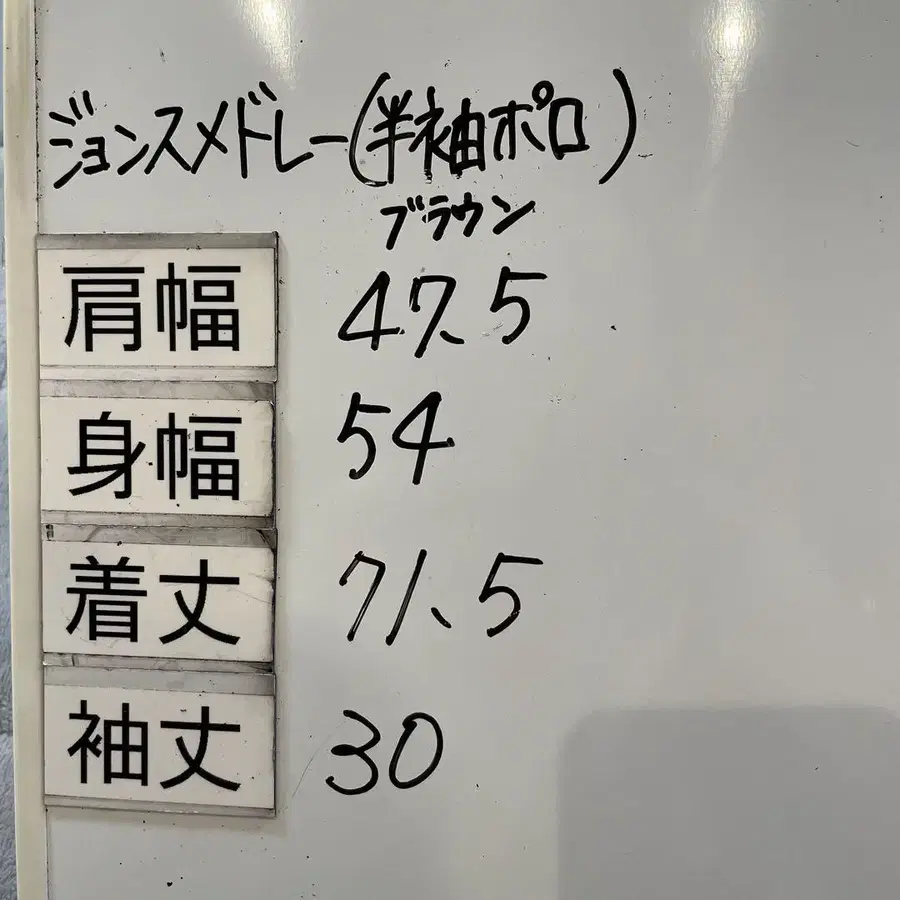 ジョンスメドレー(半袖ポロ)
ブラウン
肩幅 47.5
身幅 54
着丈 71.5
袖丈 30